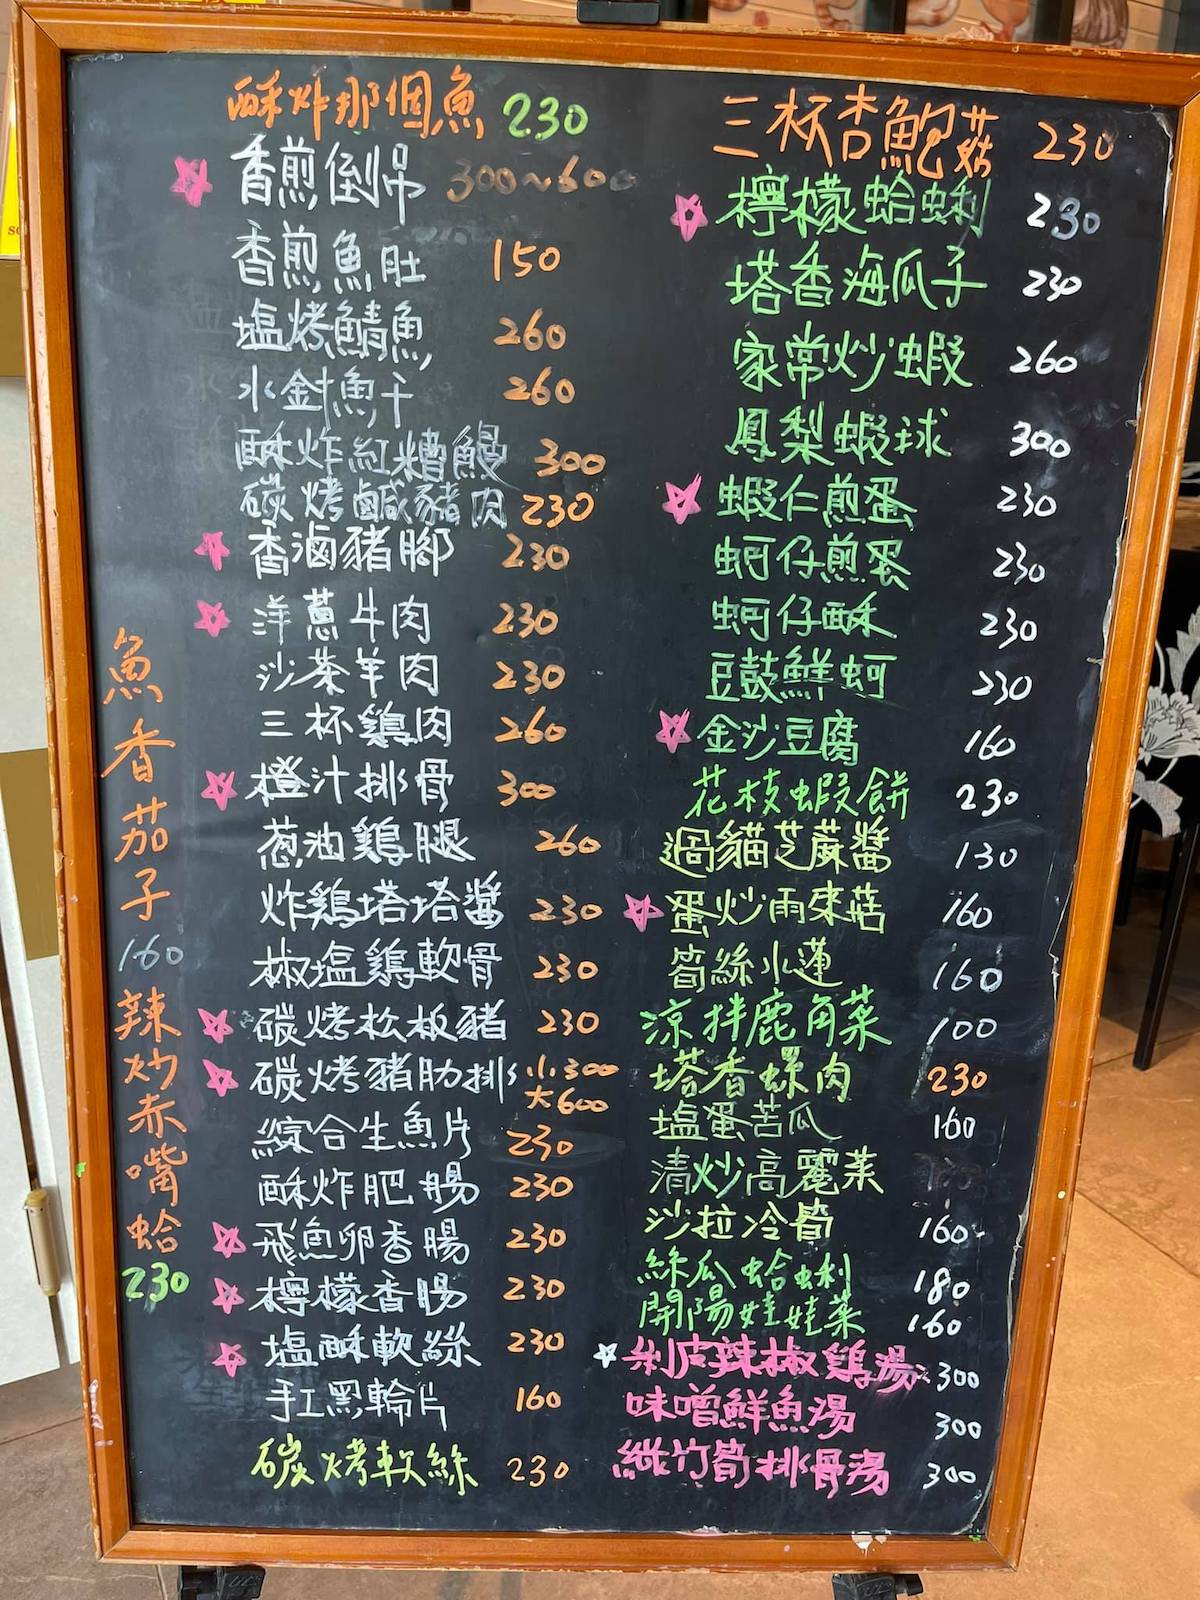 酥炸那個魚 230
香煎倒吊 300~600
香煎魚肚 150
塩烤鯖魚 260
水針魚干 260
酥炸紅糟鰻 300
碳烤鹹豬肉 230
香滷豬腳 230
洋蔥牛肉 230
沙茶羊肉 230
三杯鷄肉 260
橙汁排骨 300
葱油鷄腿 260
炸鷄塔塔醬 230
椒塩鷄軟骨 230
碳烤松板豬 230
碳烤豬肋排 小300
大600
綜合生魚片 230
酥炸肥腸 230
飛魚卵香腸 230
檸檬香腸 230
塩酥軟絲 230
手工黑輪片 160
碳烤軟絲 230
魚香茄子 160
辣炒赤嘴蛤 230
三杯杏鮑菇 230
檸檬蛤蜊 230
塔香海瓜子 230
家常炒蝦 260
鳳梨蝦球 300
蝦仁煎蛋 230
蚵仔煎蛋 230
蚵仔酥 230
豆鼓鮮蚵 230
金沙豆腐 160
花枝蝦餅 230
過貓芝蔴醬 130
蛋炒雨來菇 160
筍絲水蓮 160
涼拌鹿角菜 100
塔香螺肉 230
塩蛋苦瓜 160
清炒高麗菜
沙拉冷筍 160
絲瓜蛤蜊 180
開陽娃娃菜 160
剝皮辣椒鷄湯 300
味噌鮮魚湯 300
竹筍排骨湯 300